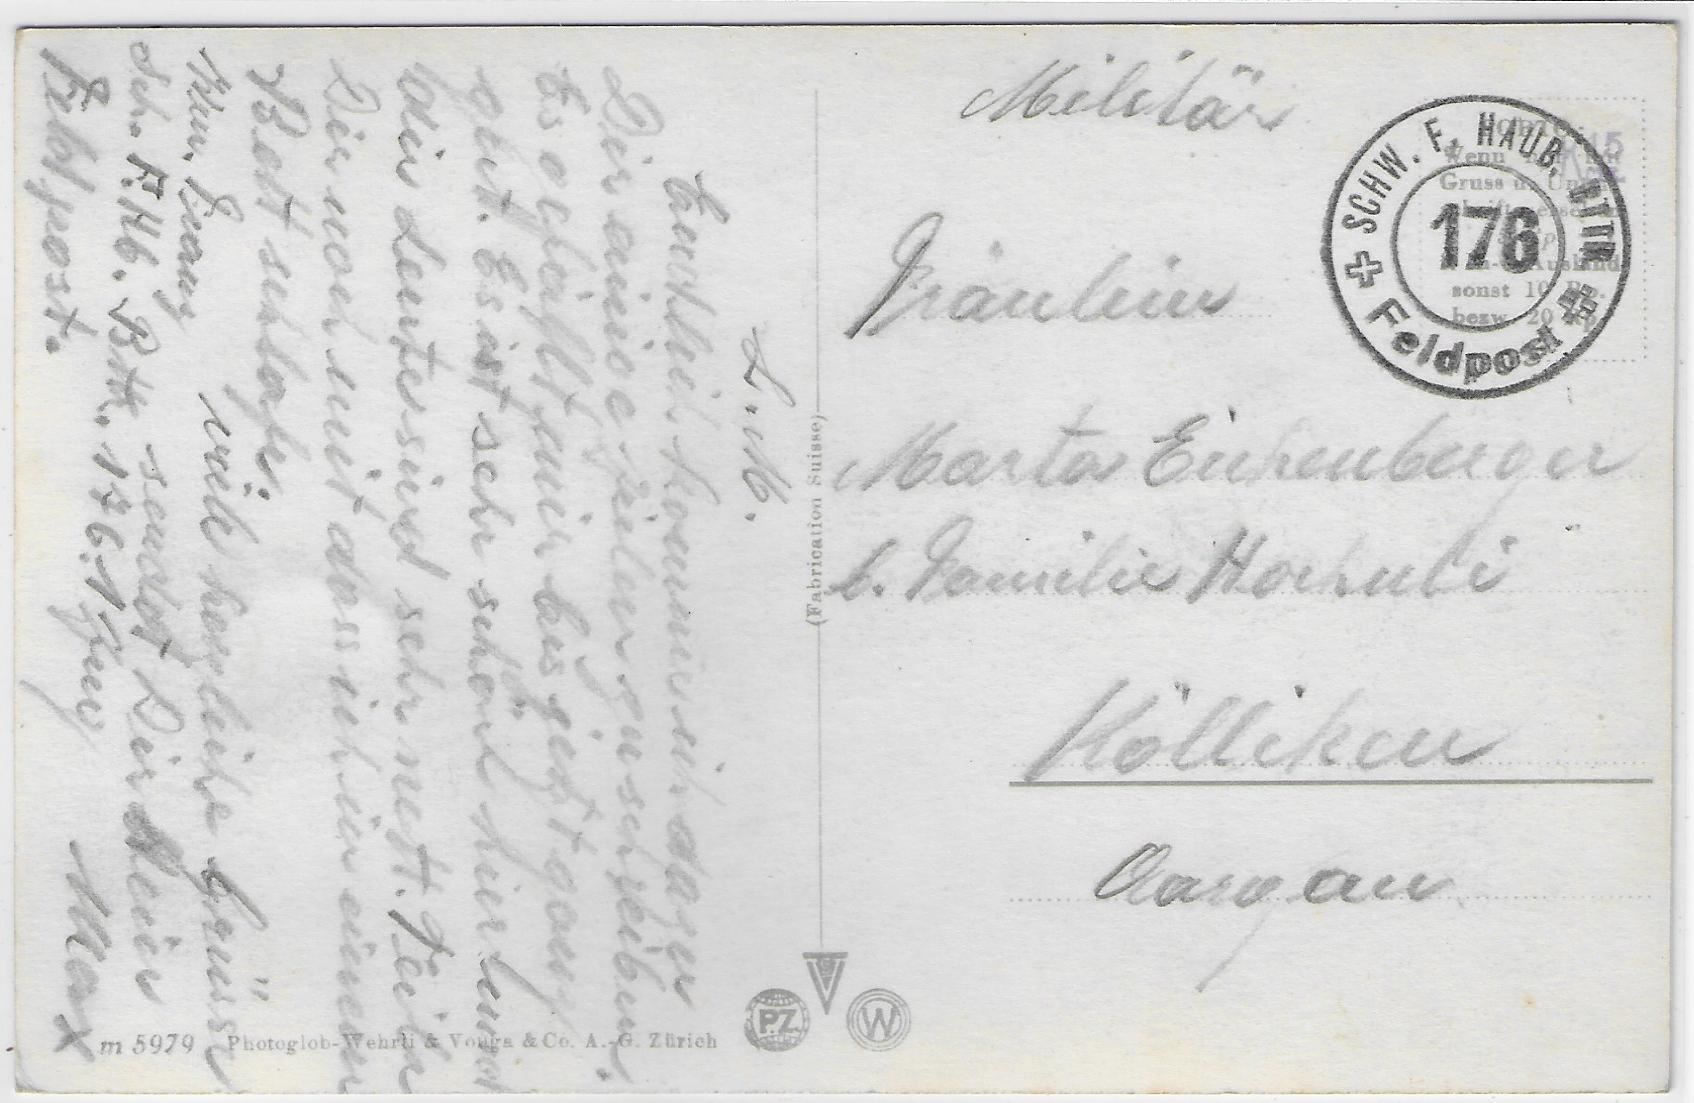 L. M.
Endlich komme ich dazu
Dir einige Zeilen zu schreiben.
Es gefällt mir bis jetzt ganz
gut. Es ist sehr schön hier und
die Leute sind sehr nett. Teile
Dir noch mit dass ich in einem
Bett schlafe.
viele herzliche Grüsse
sendet Dir Dein
Max
Sch. F. Hb. Bttr. 176. 1 Zug
Feldpost.
m 5979 Photoglob-Wehrli & Vouga & Co. A.-G. Zürich
(Fabrication Suisse)
P.Z.
W
Militär
SCHW. F. HAUB. BTTR.
176
Feldpost
Wenn
Gruss u.
Ausland
sonst 10 Rp.
bezw. 20 Rp.
Fräulein
Marta Eichenberger
b. Familie Hochuli
Kölliken
Aargau